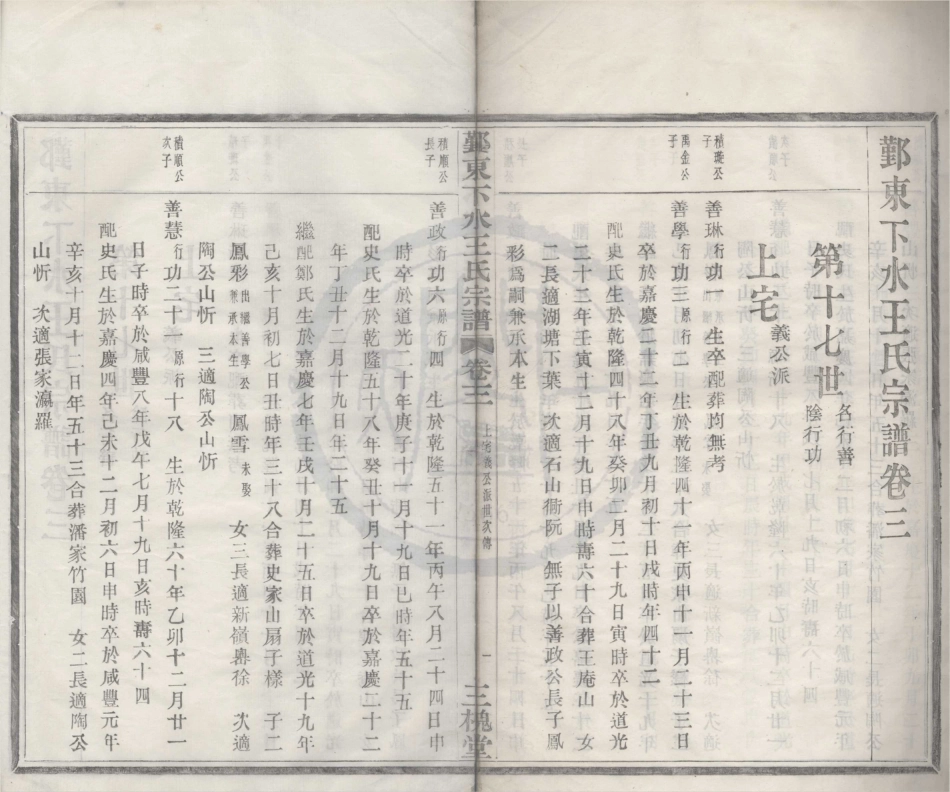 鄞東下水王氏宗譜卷三
第十七世 名行善 陰行功
上宅 義公派
積璇公子
善琳 行功一 生卒配葬均無考
禹金公子
善學 行功三 原行二 生於乾隆四十一年丙申十一月二十三日
卒於嘉慶二十二年丁丑九月初十日戌時年四十二
配史氏生於乾隆四十八年癸卯二月二十九日寅時卒於道光
二十二年壬寅十二月十九日申時壽六十合葬王庵山 女
二長適湖塘下葉 次適石山衕阮 無子以善政公長子鳳
彩爲嗣兼承本生
鄞東下水王氏宗譜 卷三 上宅義公派世次傳 一 三槐堂
積順公長子
善政 行功六 原行四 生於乾隆五十一年丙午八月二十四日申
時卒於道光二十年庚子十一月十九日巳時年五十五
配史氏生於乾隆五十八年癸丑十月十九日卒於嘉慶二十二
年丁丑十二月十九日年二十五
繼配鄭氏生於嘉慶七年壬戌十月二十五日卒於道光十九年
己亥十月初七日丑時年三十八合葬史家山扇子樣 子二
鳳彩 出繼善學公兼承本生 鳳雪 未娶 女三長適新嶺磡徐 次適
陶公山忻 三適陶公山忻
積順公次子
善慧 行功二十 原行十八 生於乾隆六十年乙卯十二月廿一
日子時卒於咸豐八年戊午七月十九日亥時壽六十四
配史氏生於嘉慶四年己未十二月初六日申時卒於咸豐元年
辛亥十月十二日年五十三合葬潘家竹園 女二長適陶公
山忻 次適張家瀛羅